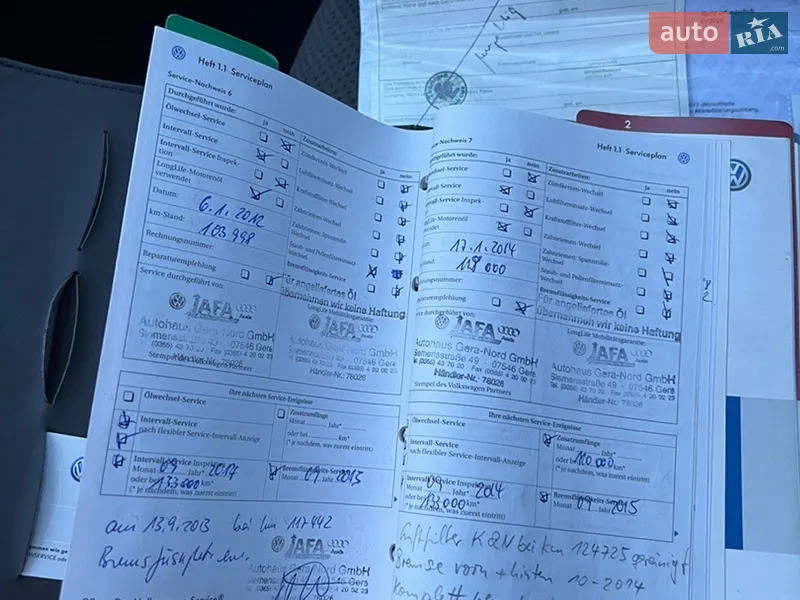 auto RIA .com
Heft 1.1 Serviceplan
Service-Nachweis 6
Durchgeführt wurde: ja nein
Ölwechsel-Service
Intervall-Service
Intervall-Service Inspek-
tion
LongLife-Motorenöl
verwendet
Datum: 6.1.2012
km-Stand: 103998
Rechnungsnummer:
Reparaturempfehlung
Service durchgeführt von:
Zusatzarbeiten: ja nein
Zündkerzen-Wechsel
Luftfiltereinsatz-Wechsel
Kraftstofffilter-Wechsel
Zahnriemen-Wechsel
Zahnriemen: Spannrolle-
Wechsel
Staub- und Pollenfiltereinsatz-
Wechsel
Bremsflüssigkeits-Service
Für angeliefertes Öl
übernehmen wir keine Haftung
LongLife Mobilitätsgarantie:
JAFA Audi
Autohaus Gera-Nord GmbH
Siemensstraße 49 - 07546 Gera
Tel. (0365) 43 70 20 Fax (0365) 4 20 02 23
Händler-Nr.: 78026
Stempel des Volkswagen Partners
Ihre nächsten Service-Ereignisse
Ölwechsel-Service
Intervall-Service
nach flexibler Service-Intervall-Anzeige
Intervall-Service Inspektion
Monat 09 Jahr* 2014
oder bei 133000 km*
(* je nachdem, was zuerst eintritt)
Zusatzumfänge
Monat Jahr*
oder bei km*
(* je nachdem, was zuerst eintritt)
Bremsflüssigkeits-Service
Monat 09 Jahr 2013
am 13.9.2013 bei km 117442
JAFA Audi
Autohaus Gera-Nord GmbH
Siemensstraße 49 - 07546 Gera
2
Heft 1.1 Serviceplan
Service-Nachweis 7
Durchgeführt wurde: ja nein
Ölwechsel-Service
Intervall-Service
Intervall-Service Inspek-
LongLife-Motorenöl
verwendet
17.1.2014
000
Rechnungsnummer:
Reparaturempfehlung
Zusatzarbeiten: ja nein
Zündkerzen-Wechsel
Luftfiltereinsatz-Wechsel
Kraftstofffilter-Wechsel
Zahnriemen-Wechsel
Zahnriemen: Spannrolle-
Wechsel
Staub- und Pollenfiltereinsatz-
Wechsel
Bremsflüssigkeits-Service
Für angeliefertes Öl
übernehmen wir keine Haftung
LongLife Mobilitätsgarantie:
JAFA Audi
Autohaus Gera-Nord GmbH
Siemensstraße 49 - 07546 Gera
Tel. (0365) 43 70 20 Fax (0365) 4 20 02 23
Händler-Nr.: 78026
Stempel des Volkswagen Partners
Ihre nächsten Service-Ereignisse
Ölwechsel-Service
Intervall-Service
nach flexibler Service-Intervall-Anzeige
Intervall-Service Inspektion
Monat 09 Jahr* 2014
oder bei 133000 km*
(* je nachdem, was zuerst eintritt)
Zusatzumfänge
Monat Jahr*
oder bei 110000 km*
(* je nachdem, was zuerst eintritt)
Bremsflüssigkeits-Service
Monat 09 Jahr 2015
Luftfilter K&N bei km 124725 gereinigt
Bremse vorn + hinten 10-2014
komplett